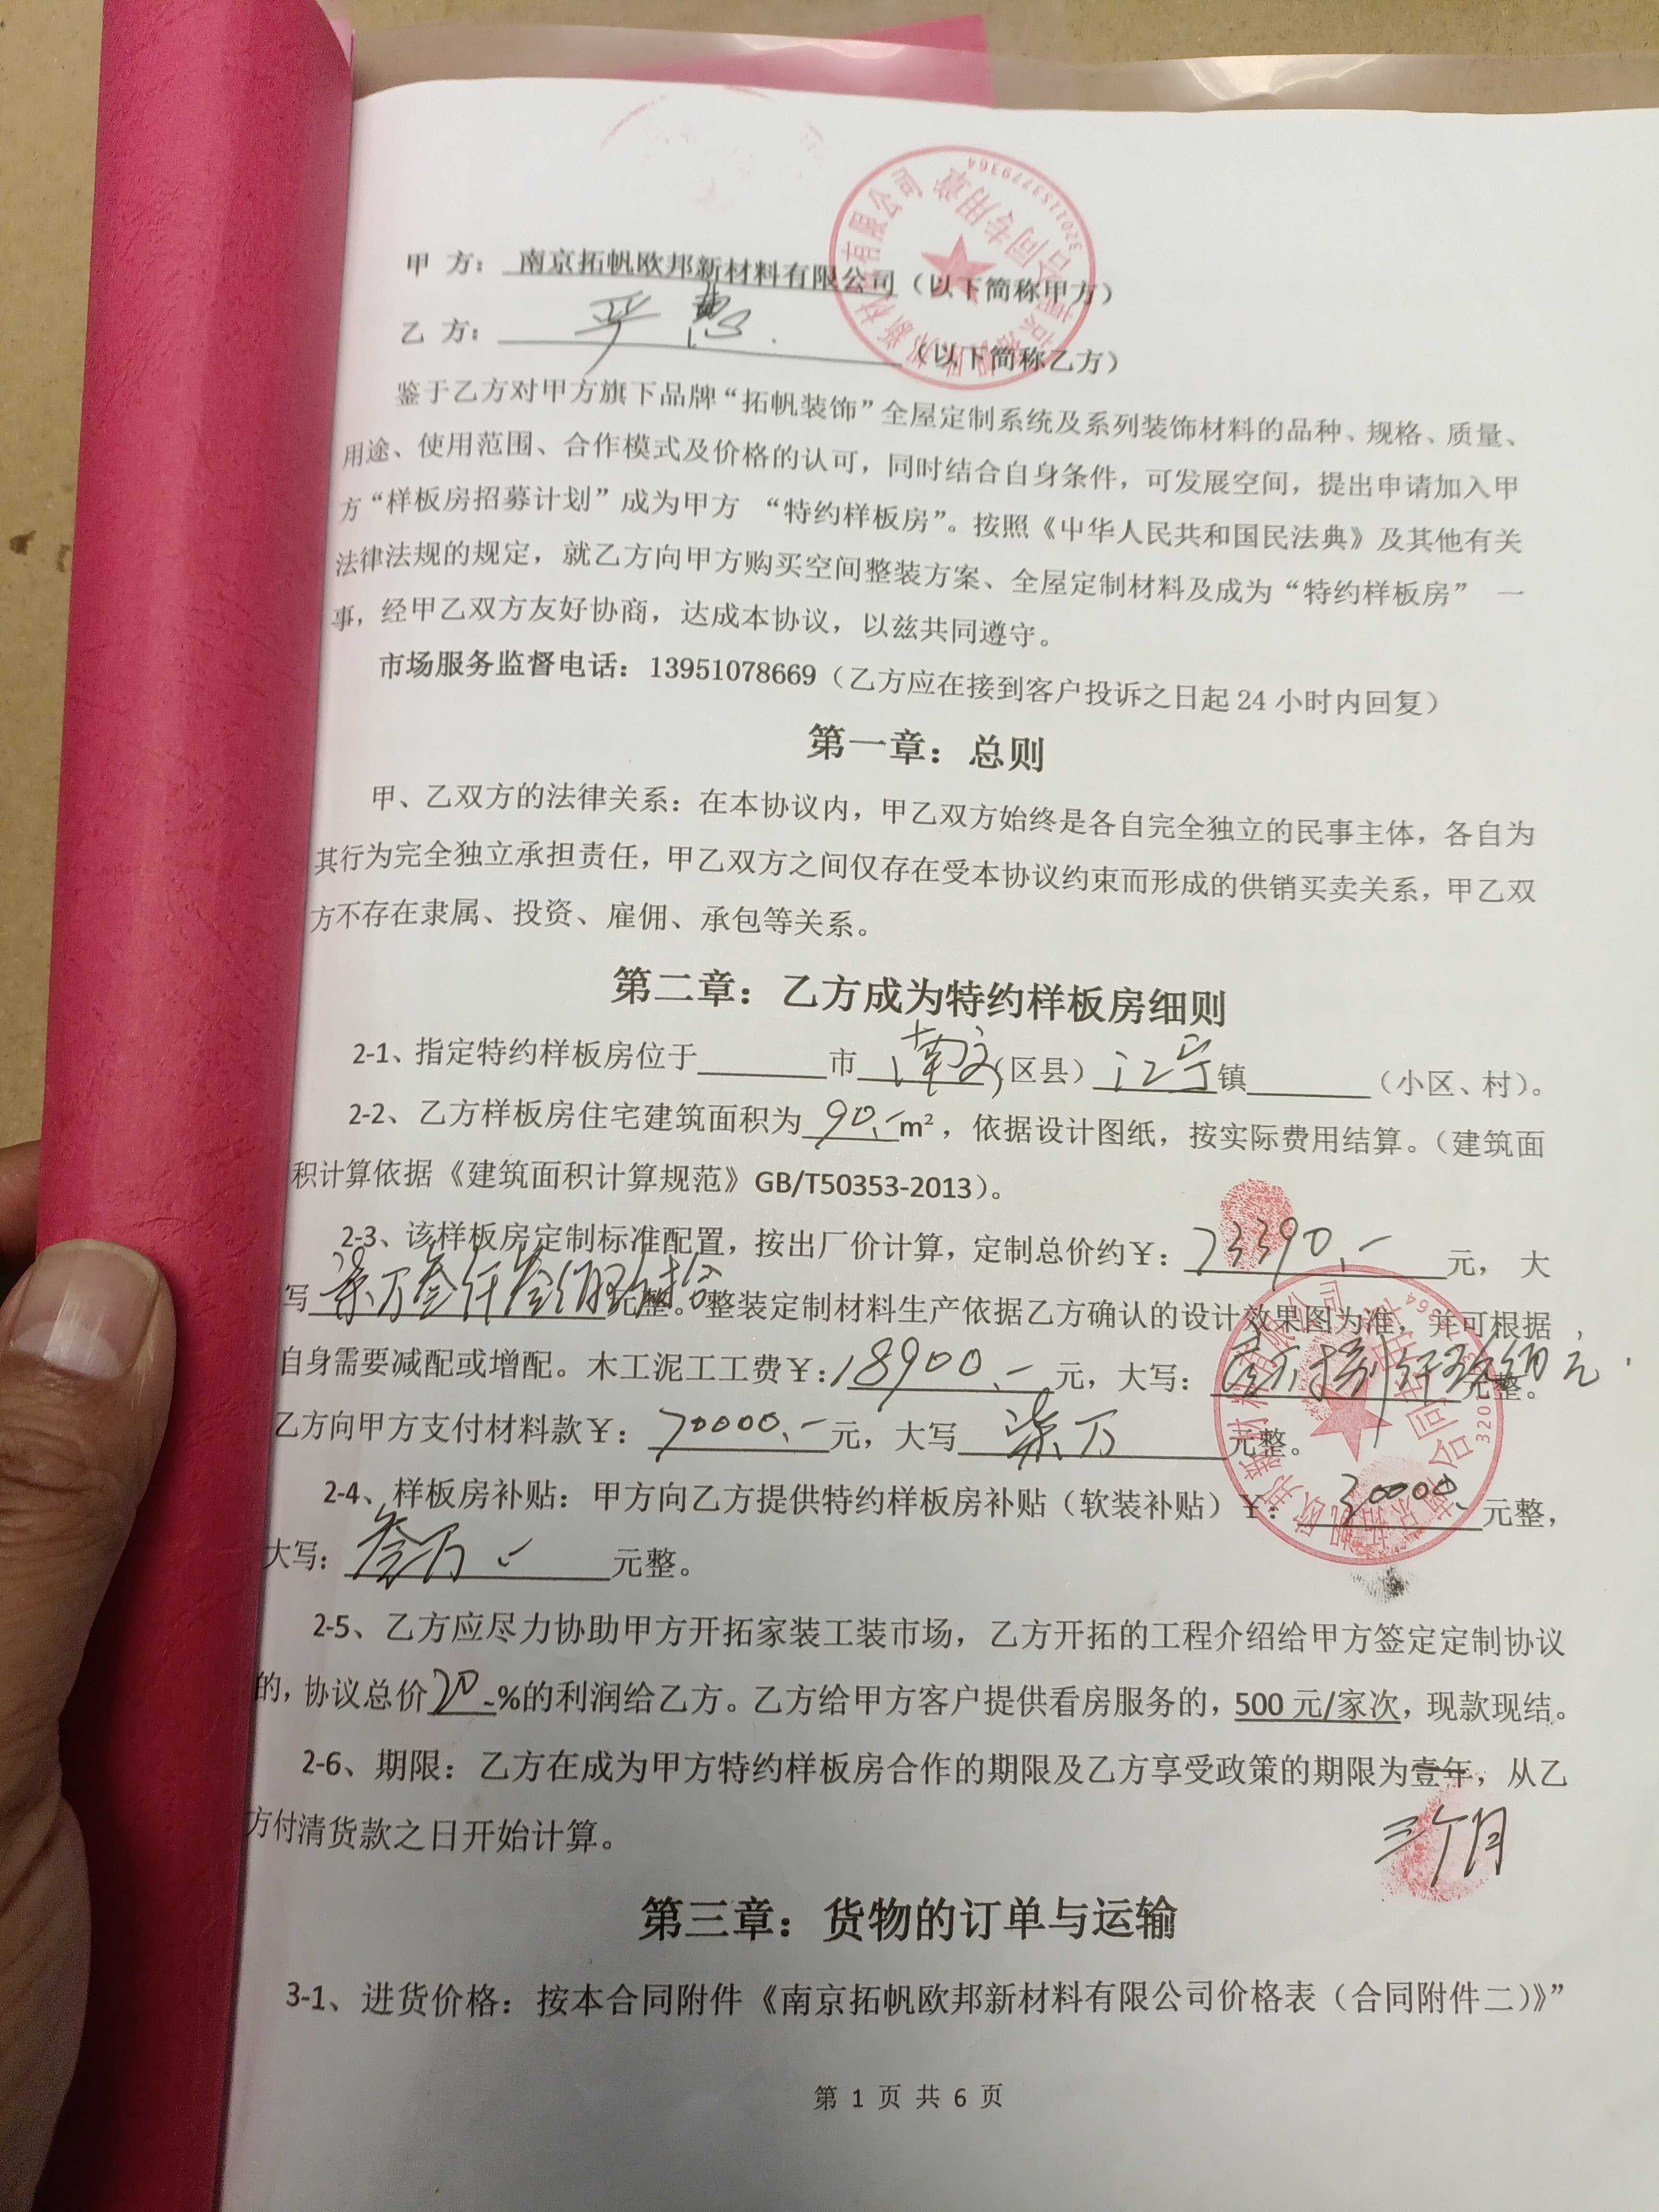 甲 方： 南京拓帆欧邦新材料有限公司（以下简称甲方）
乙 方： （以下简称乙方）
鉴于乙方对甲方旗下品牌“拓帆装饰”全屋定制系统及系列装饰材料的品种、规格、质量、
用途、使用范围、合作模式及价格的认可，同时结合自身条件，可发展空间，提出申请加入甲
方“样板房招募计划”成为甲方 “特约样板房”。按照《中华人民共和国民法典》及其他有关
法律法规的规定，就乙方向甲方购买空间整装方案、全屋定制材料及成为“特约样板房” 一
事，经甲乙双方友好协商，达成本协议，以兹共同遵守。
市场服务监督电话：13951078669（乙方应在接到客户投诉之日起 24 小时内回复）
第一章：总则
甲、乙双方的法律关系：在本协议内，甲乙双方始终是各自完全独立的民事主体，各自为
其行为完全独立承担责任，甲乙双方之间仅存在受本协议约束而形成的供销买卖关系，甲乙双
方不存在隶属、投资、雇佣、承包等关系。
第二章：乙方成为特约样板房细则
2-1、指定特约样板房位于 市 南京（区县） 江宁 镇 （小区、村）。
2-2、乙方样板房住宅建筑面积为 90.- m²，依据设计图纸，按实际费用结算。（建筑面
积计算依据《建筑面积计算规范》GB/T50353-2013）。
2-3、该样板房定制标准配置，按出厂价计算，定制总价约￥： 73390.- 元， 大
写 柒万叁仟叁佰玖拾 元整。整装定制材料生产依据乙方确认的设计效果图为准，并可根据
自身需要减配或增配。木工泥工工费￥: 18900.- 元，大写： 元整。
乙方向甲方支付材料款￥： 70000.- 元，大写 柒万 元整。
2-4、样板房补贴：甲方向乙方提供特约样板房补贴（软装补贴）￥： 30000. 元整，
大写： 叁万 元整。
2-5、乙方应尽力协助甲方开拓家装工装市场，乙方开拓的工程介绍给甲方签定定制协议
的，协议总价 20 -%的利润给乙方。乙方给甲方客户提供看房服务的，500 元/家次，现款现结。
2-6、期限：乙方在成为甲方特约样板房合作的期限及乙方享受政策的期限为壹年，从乙
三个月
方付清货款之日开始计算。
第三章：货物的订单与运输
3-1、进货价格：按本合同附件《南京拓帆欧邦新材料有限公司价格表（合同附件二）》”
第 1 页 共 6 页